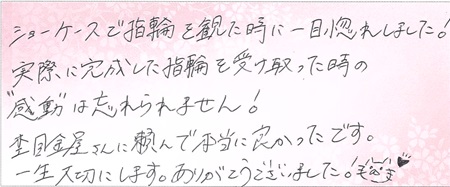 ショーケースで指輪を観た時に一目惚れしました!
実際に完成した指輪を受け取った時の
"感動"は忘れられません!
杢目金屋さんに頼んで本当に良かったです。
一生大切にします。ありがとうございました!